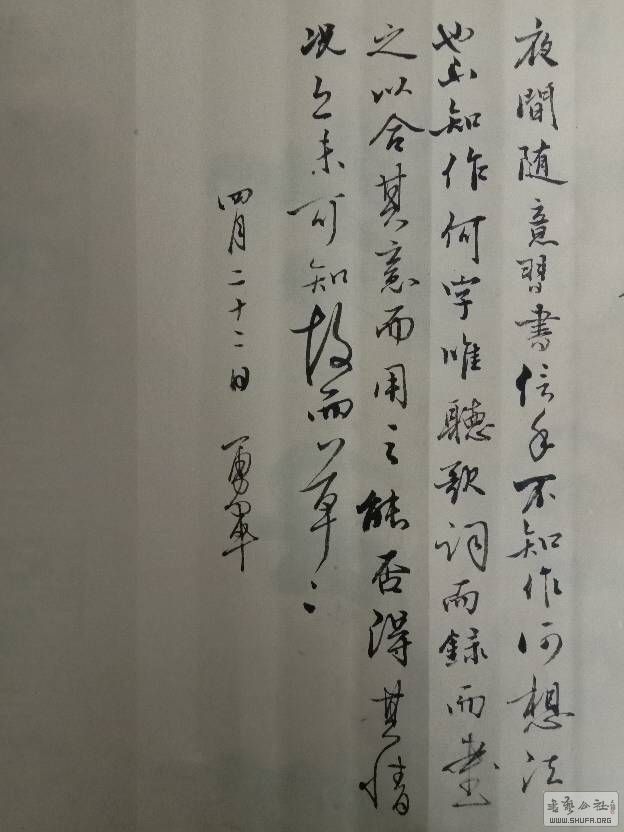 夜間随意習書信手不知作何想法
也不知作何字唯聽歌詞而録而
之以合其意而用之能否得其情
况亦未可知故而以草〻
四月二十二日 勇軍
WWW.SHUFA.ORG